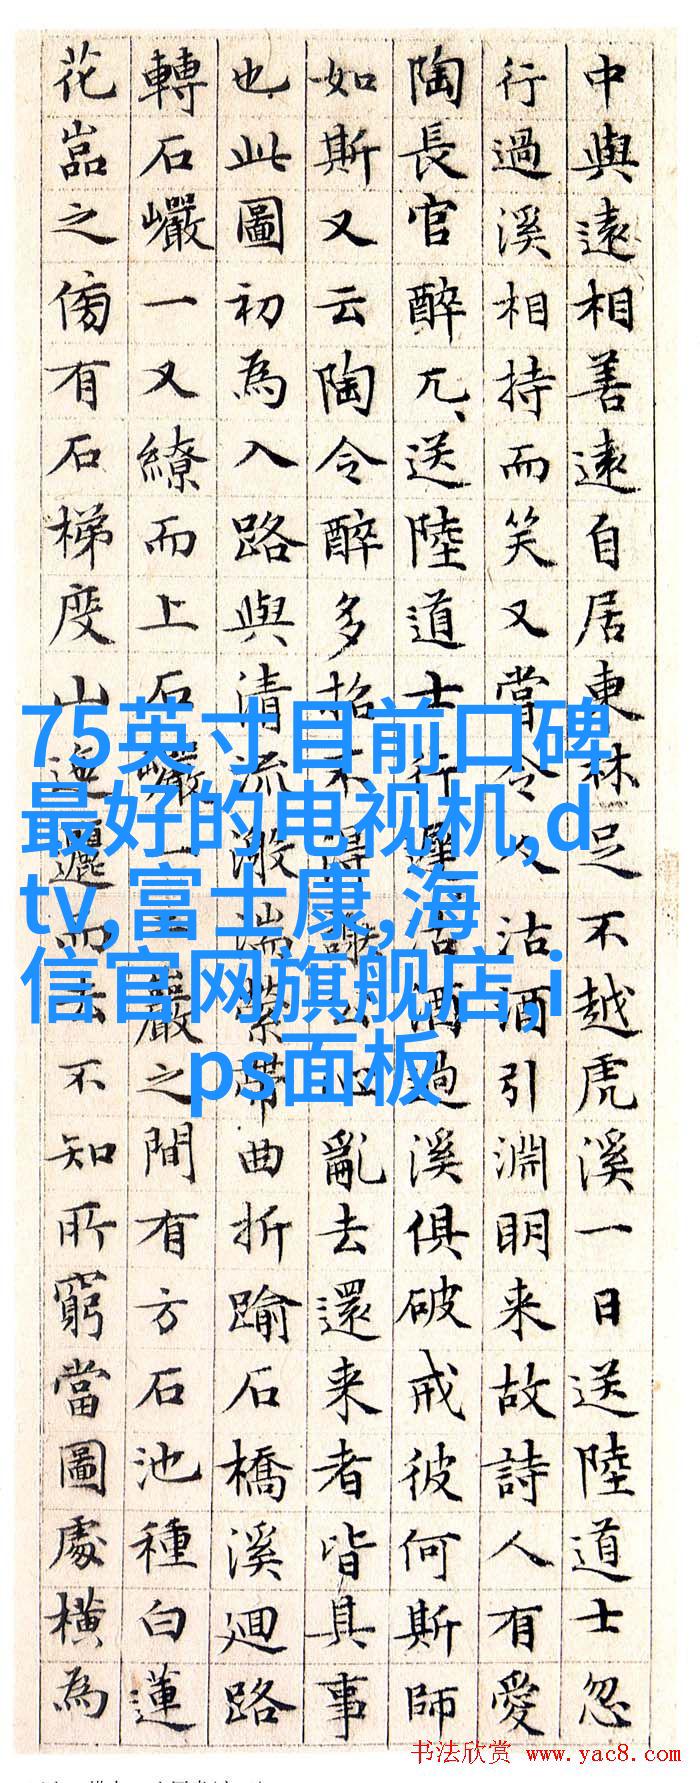 中與遠相善遠自居東林足不越虎溪一日送陸道士忽
行過溪相持而笑又嘗令人沽酒引淵明来故詩人有愛
陶長官醉兀、送陸道士行遲沽酒過溪俱破戒彼何斯師
如斯又云陶令醉多招不得心亂去還来者皆具事
也此圖初為入路與清流激湍縈帶曲折踰石橋溪廻路
轉石巗一又繚而上石巗巖之間有方石池種白蓮
花嵓之傍有石梯度山迤邐而去不知所窮當圖處橫為
75英寸目前口碑
最好的电视机,d
tv,富士康,海
信官网旗舰店,i
ps面板
书法欣赏 www.yac8.com